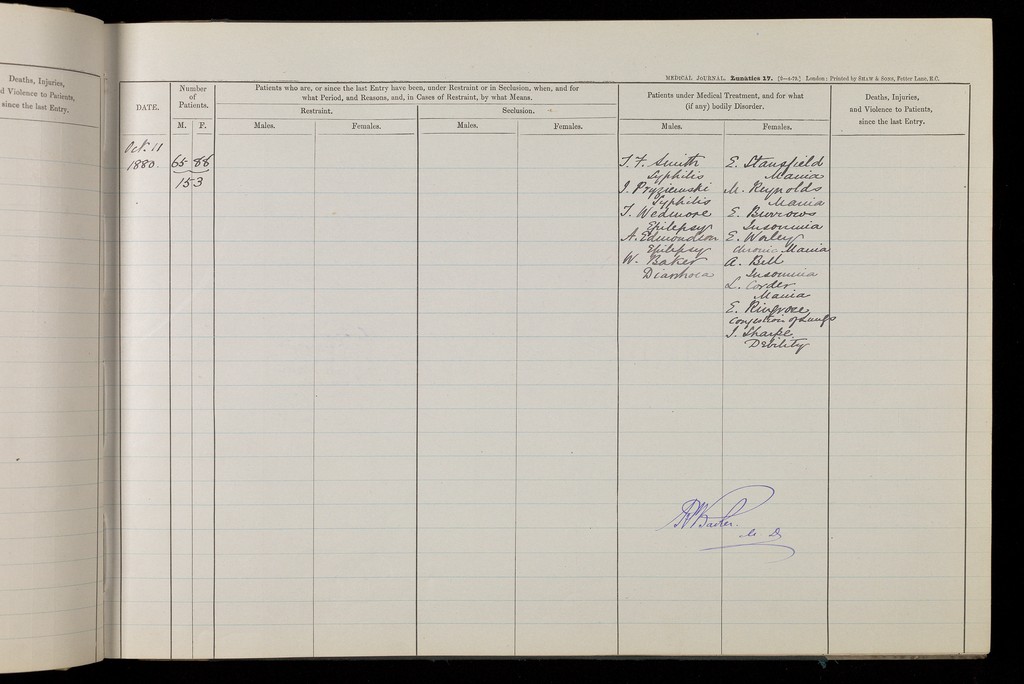 Deaths, Injuries,
d Violence to Patients,
since the last Entry.
MEDICAL JOURNAL. Lunatics 17. [9—8-79.] London: Printed by SHAW & SONS, Fetter Lane, E.C.
DATE.
Number
of
Patients.
M. F.
Patients who are, or since the last Entry have been, under Restraint or in Seclusion, when, and for
what Period, and Reasons, and, in Cases of Restraint, by what Means.
Restraint.
Seclusion.
Males.
Females.
Males.
Females.
Patients under Medical Treatment, and for what
(if any) bodily Disorder.
Males.
Females.
Deaths, Injuries,
and Violence to Patients,
since the last Entry.
Oct. 11
1880.
65 88
153
T. F. Smith
Syphilis
J. Pryzienuski
Syphilis
T. Wedmore
Epilepsy
A. Edmondson
Epilepsy
W. Baker
Diarrhoea
E. Stansfield
Mania
M. Reynolds
Mania
E. Burrows
Insomnia
E. Worley
Chronic Mania
A. Bell
Insomnia
L. Corder
Mania
E. Ringrose
Congestion of Lungs
J. Sharpe
Debility
M D